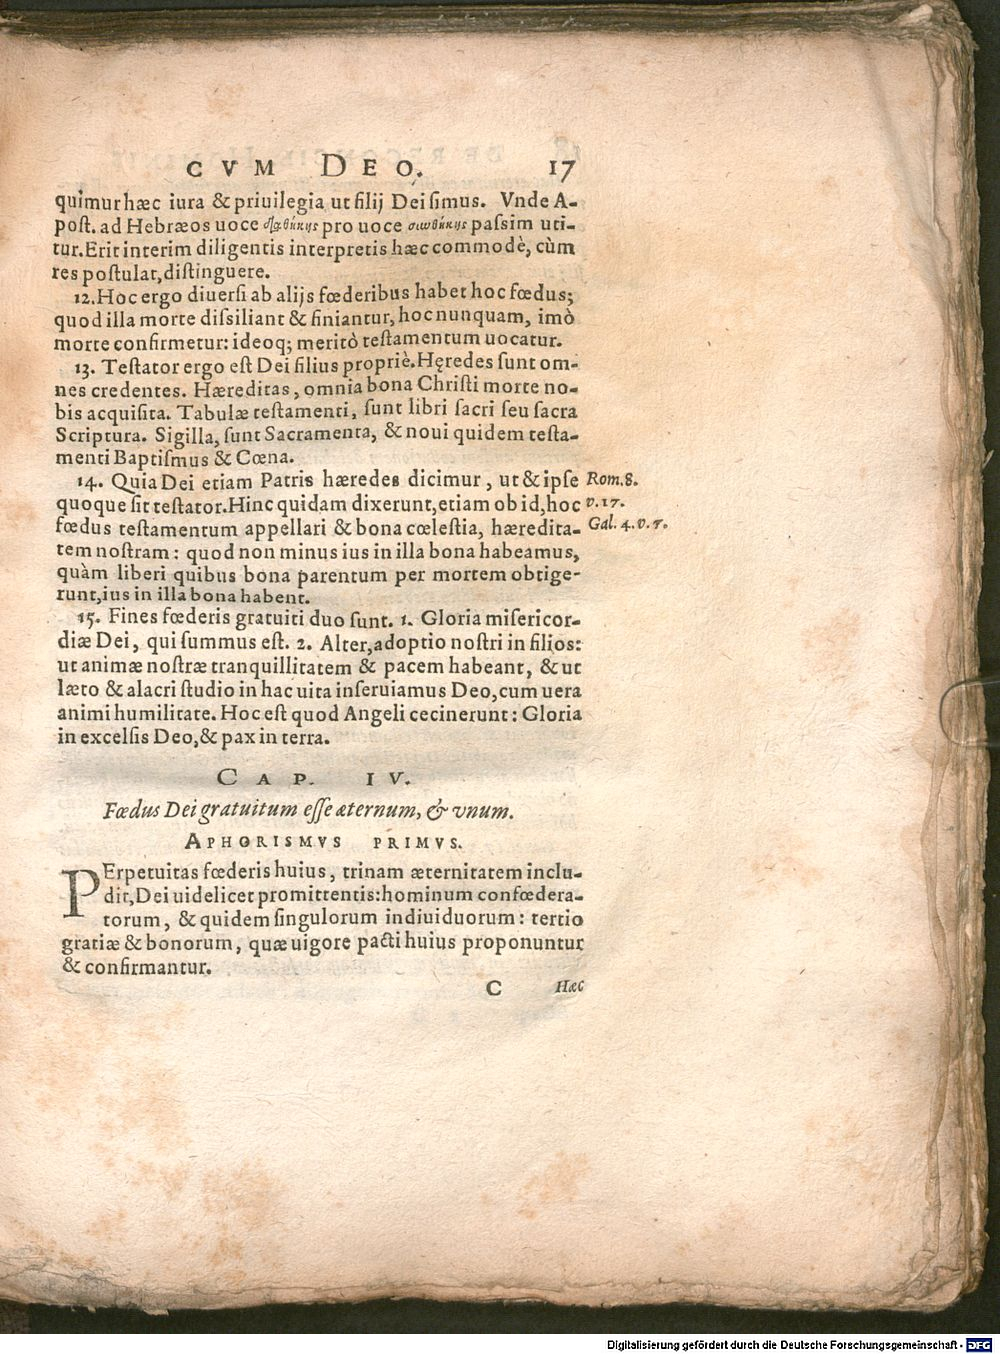 CVM DEO. 17
quimur hæc iura & priuilegia ut filij Dei simus. Vnde A-
post. ad Hebræos uoce διαθήκης pro uoce συνθήκης passim uti-
tur. Erit interim diligentis interpretis hæc commodè, cùm
res postulat, distinguere.
12. Hoc ergo diuersi ab alijs fœderibus habet hoc fœdus;
quod illa morte dissiliant & finiantur, hoc nunquam, imò
morte confirmetur: ideoq; meritò testamentum uocatur.
13. Testator ergo est Dei filius propriè. Hęredes sunt om-
nes credentes. Hæreditas, omnia bona Christi morte no-
bis acquisita. Tabulæ testamenti, sunt libri sacri seu sacra
Scriptura. Sigilla, sunt Sacramenta, & noui quidem testa-
menti Baptismus & Cœna.
14. Quia Dei etiam Patris hæredes dicimur, ut & ipse Rom. 8.
quoque sit testator. Hinc quidam dixerunt, etiam ob id, hoc v. 17.
fœdus testamentum appellari & bona cœlestia, hæredita- Gal. 4. v. 7.
tem nostram: quod non minus ius in illa bona habeamus,
quàm liberi quibus bona parentum per mortem obtige-
runt, ius in illa bona habent.
15. Fines fœderis gratuiti duo sunt. 1. Gloria misericor-
diæ Dei, qui summus est. 2. Alter, adoptio nostri in filios:
ut animæ nostræ tranquillitatem & pacem habeant, & ut
læto & alacri studio in hac uita inseruiamus Deo, cum uera
animi humilitate. Hoc est quod Angeli cecinerunt: Gloria
in excelsis Deo, & pax in terra.
CAP. IV.
Fœdus Dei gratuitum esse æternum, & vnum.
APHORISMVS PRIMVS.
PErpetuitas fœderis huius, trinam æternitatem inclu-
dit, Dei uidelicet promittentis: hominum confœdera-
torum, & quidem singulorum indiuiduorum: tertio
gratiæ & bonorum, quæ uigore pacti huius proponuntur
& confirmantur.
C Hæc
Digitalisierung gefördert durch die Deutsche Forschungsgemeinschaft - DFG